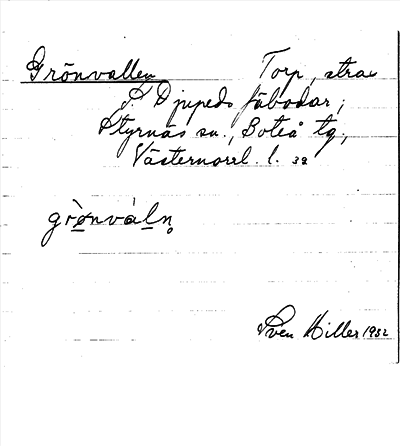 Grönvallen Torp, strax
S. Djupeds fäbodar,
Styrnäs sn., Boteå tg,
Västernorrl. l. 32
grø̀nvàln̥
Sven Hiller 1932